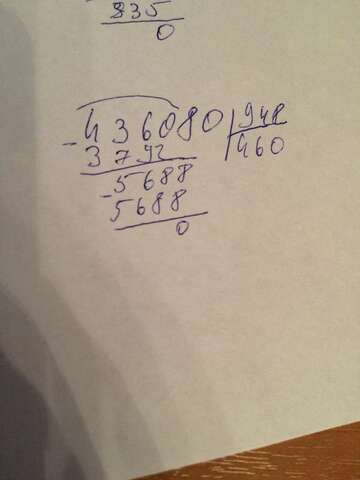 835
0
- 436080 | 948
3792 | 460
- 5688
5688
0